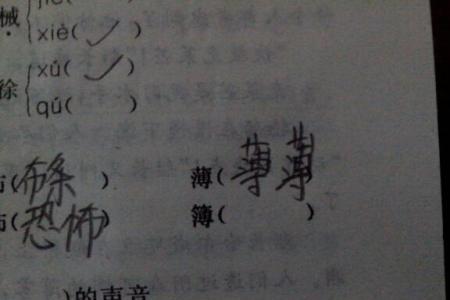 械
xiè( ✓ )
徐
xú( ✓ )
qú( )
(布条 ) 薄(薄薄 )
(恐怖) 簿( )
)的声音